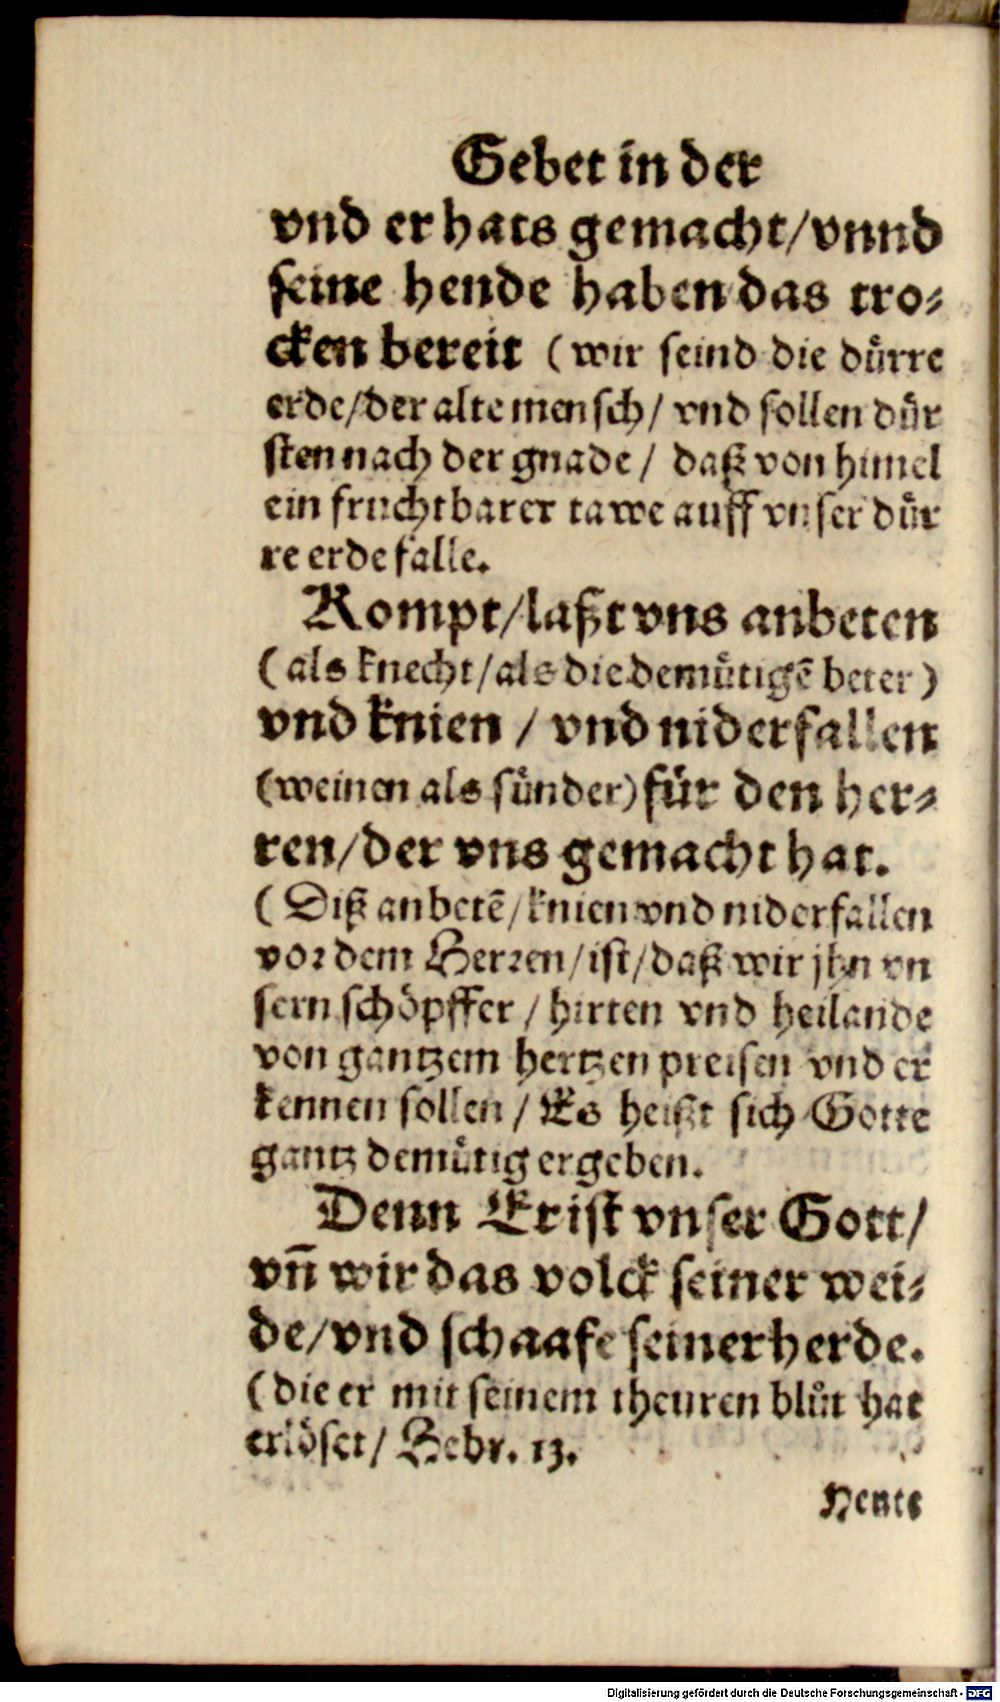 Gebet in der
vnd er hats gemacht/vnnd
seine hende haben das tro⸗
cken bereit (wir seind die dürre
erde/der alte mensch/ vnd sollen dür
sten nach der gnade/ daß von himel
ein fruchtbarer tawe auff vnser dür
re erde falle.
Kompt/laßt vns anbeten
(als knecht/als die demütigē beter)
vnd knien/ vnd niderfallen
(weinen als sünder) für den her⸗
ren/der vns gemacht hat.
(Diß anbetē/knien vnd niderfallen
vor dem Herren/ist/daß wir jhn vn
sern schöpffer/ hirten vnd heilande
von gantzem hertzen preisen vnd er
kennen sollen/ Es heißt sich Gotte
gantz demütig ergeben.
Denn Er ist vnser Gott/
vñ wir das volck seiner wei⸗
de/vnd schaafe seiner herde.
(die er mit seinem theuren blůt hat
erlöset/ Hebr. 13.
Heute
Digitalisierung gefördert durch die Deutsche Forschungsgemeinschaft - DFG